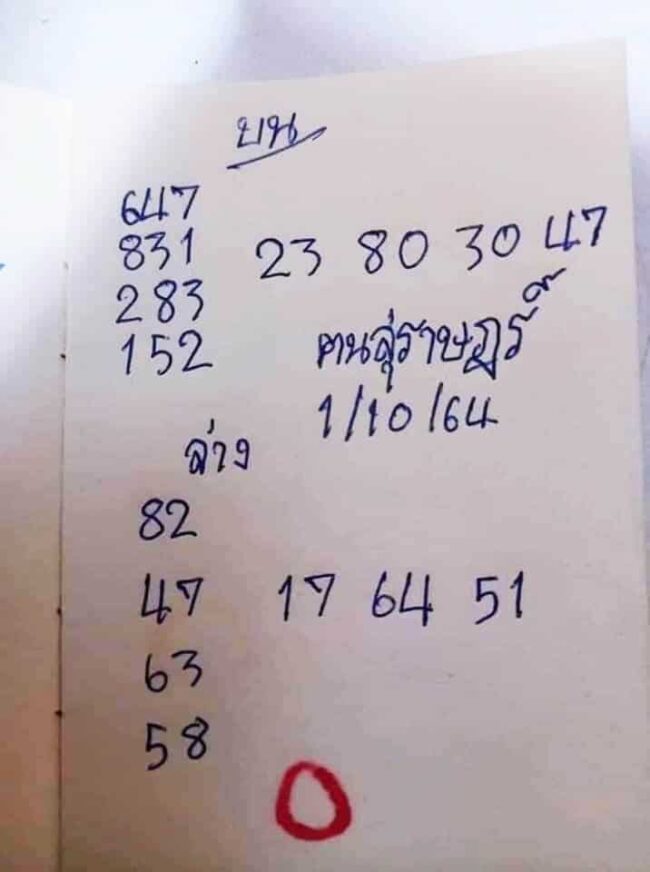 บน
647
831 23 80 30 47
283
152 คนสุ่ราษฎร์
1/10/64
ล่าง
82
47 17 64 51
63
58
0